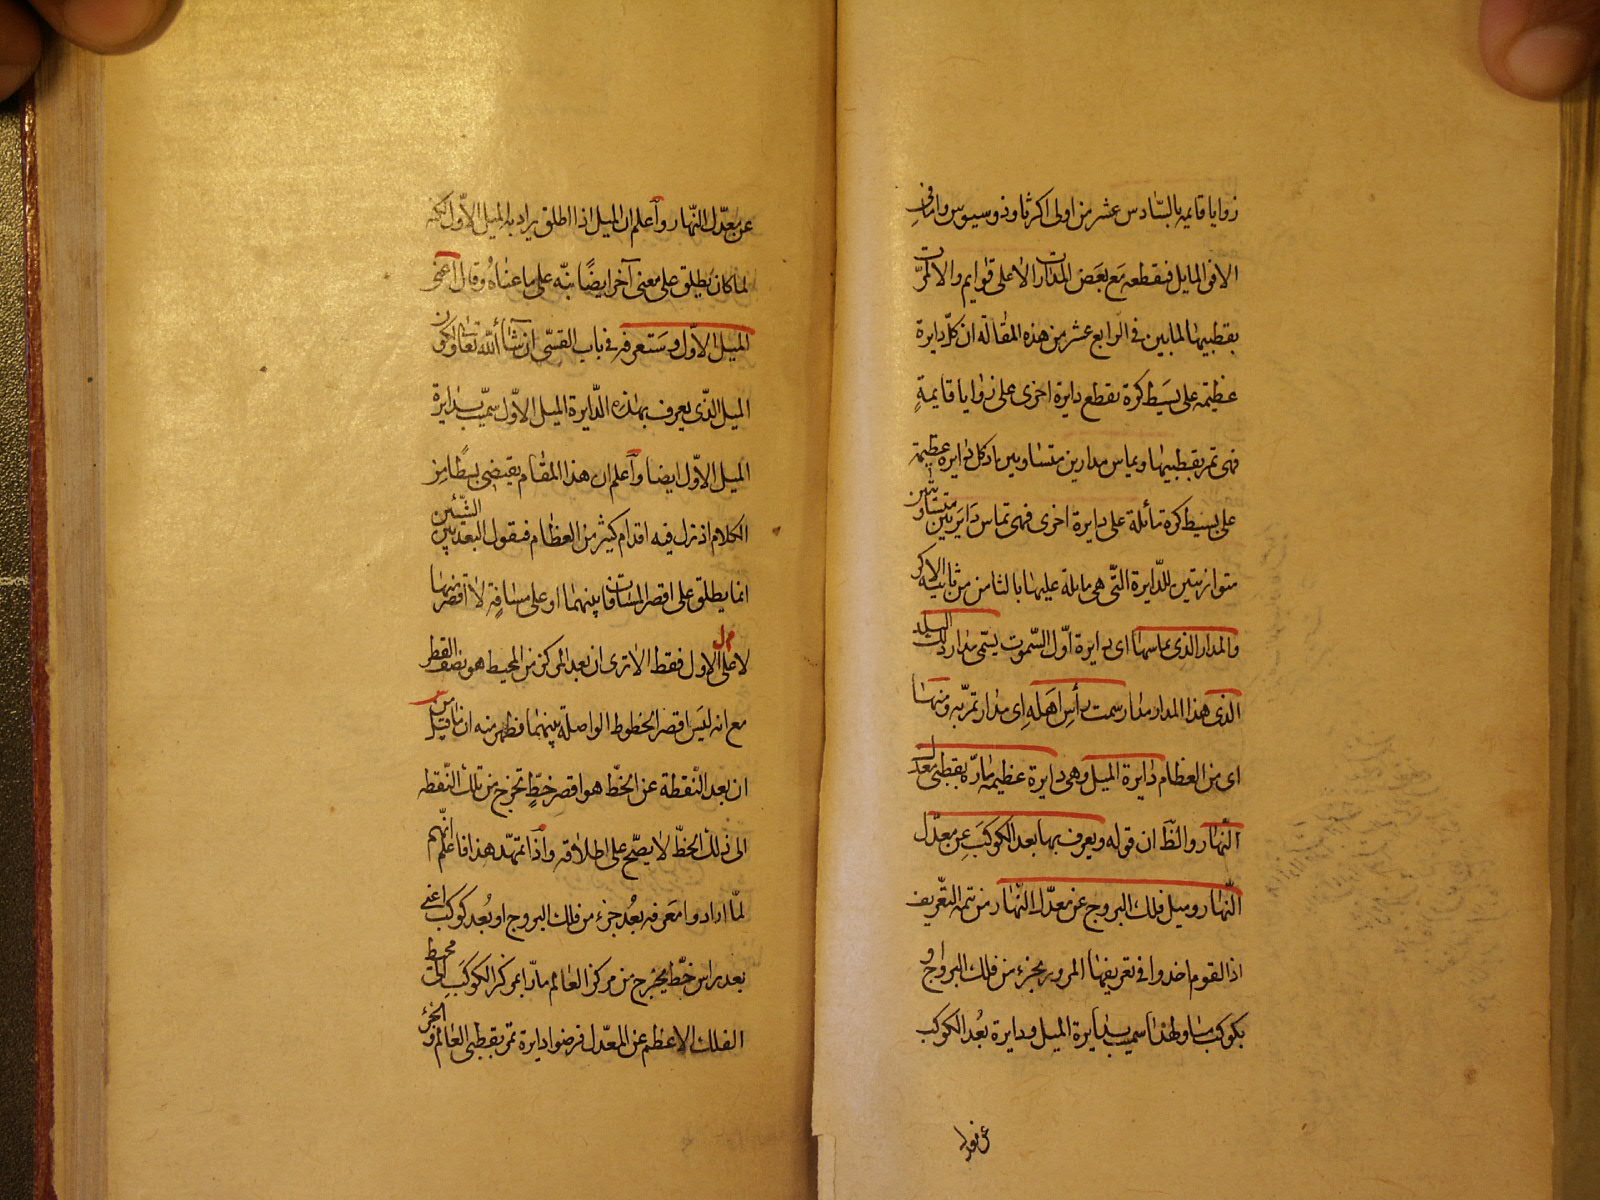 زوايا قايمة بالسّادس عشر من اولى اكر ثاوذوسيوس واما في
الافق المايل فيقطعه مع بعض المدارات لا على قوايم والا لمرّت
بقطبيها لما بين في الرابع عشر من هذه المقالة ان كلّ دايرة
عظيمة على بسيط كرة تقطع دايرة اخرى على زوايا قايمةٍ
فهى تمر بقطبيها ويماس مدارين متساويين اذ كل دايرة عظيمة
على بسيط كرة مائلة على دايرة اخرى فهى تماس دايرتين متساويتين
متوازيتين للدّايرة التّي هى مايلة عليها بالثامن من ثانية الاكر
والمدار الذى يماسها اى دايرة اوّل السّموت يسمّى مدار ذلك البلد
الذى هذا المدار مدار سمت رأس اهله اى مدار تمرّ به ومنها
اى من العظام دايرة الميل وهى دايرة عظيمة مارّة بقطبى معدل
النّهار والظّ ان قوله ويعرف بها بعد الكوكب عن معدّل
النّهار وميل فلك البروج عن معدّل النّهار من تتمة التّعريف
اذ القوم اخذوا في تعريفها المرور بجزء من فلك البروج او
بكوكب ما ولهذا سميت بدايرة الميل ودايرة بُعد الكوكب
عن معدّل النّهار واعلم ان الميل اذا اطلق يراد به الميل الاوّل لكنه
لما كان يطلق على معنى آخر ايضًا نبّه على ما عناه وقال اعنى
الميل الاوّل وستعرفه في باب القسّى ان شآء الله تعالى ولكون
الميل الذّى يعرف بهذه الدّايرة الميل الاوّل سميّت بدايرة
الميل الاوّل ايضا واعلم ان هذا المقام يقتضى بسطًا من
الكلام اذ تزل فيه اقدام كثير من العظام فنقول البعد بين الشّيئين
انما يطلق على اقصر المسافات بينهما او على مسافةٍ لا اقصر منها
لا على الاول فقط الا ترى ان بعد المركز من المحيط هو نصف القطر
مع انه ليس اقصر الخطوط الواصلة بينهما فظهر منه ان ما قيل من
ان بعد النّقطة عن الخطّ هو اقصر خطٍّ تخرج من تلك النّقطة
الى ذلك الخطّ لا يصّح على اطلاقه واذا تمهّد هذا فاعلم انّهم
لمّا ارادوا معرفة بُعد جزء من فلك البروج او بُعد كوكب اعنى
بعد راس خطّ يخرج من مركز العالم مارّا بمركز الكوكب الى محيط
الفلك الاعظم عن المعدّل فرضوا دايرة تمر بقطبى العالم و الجزء